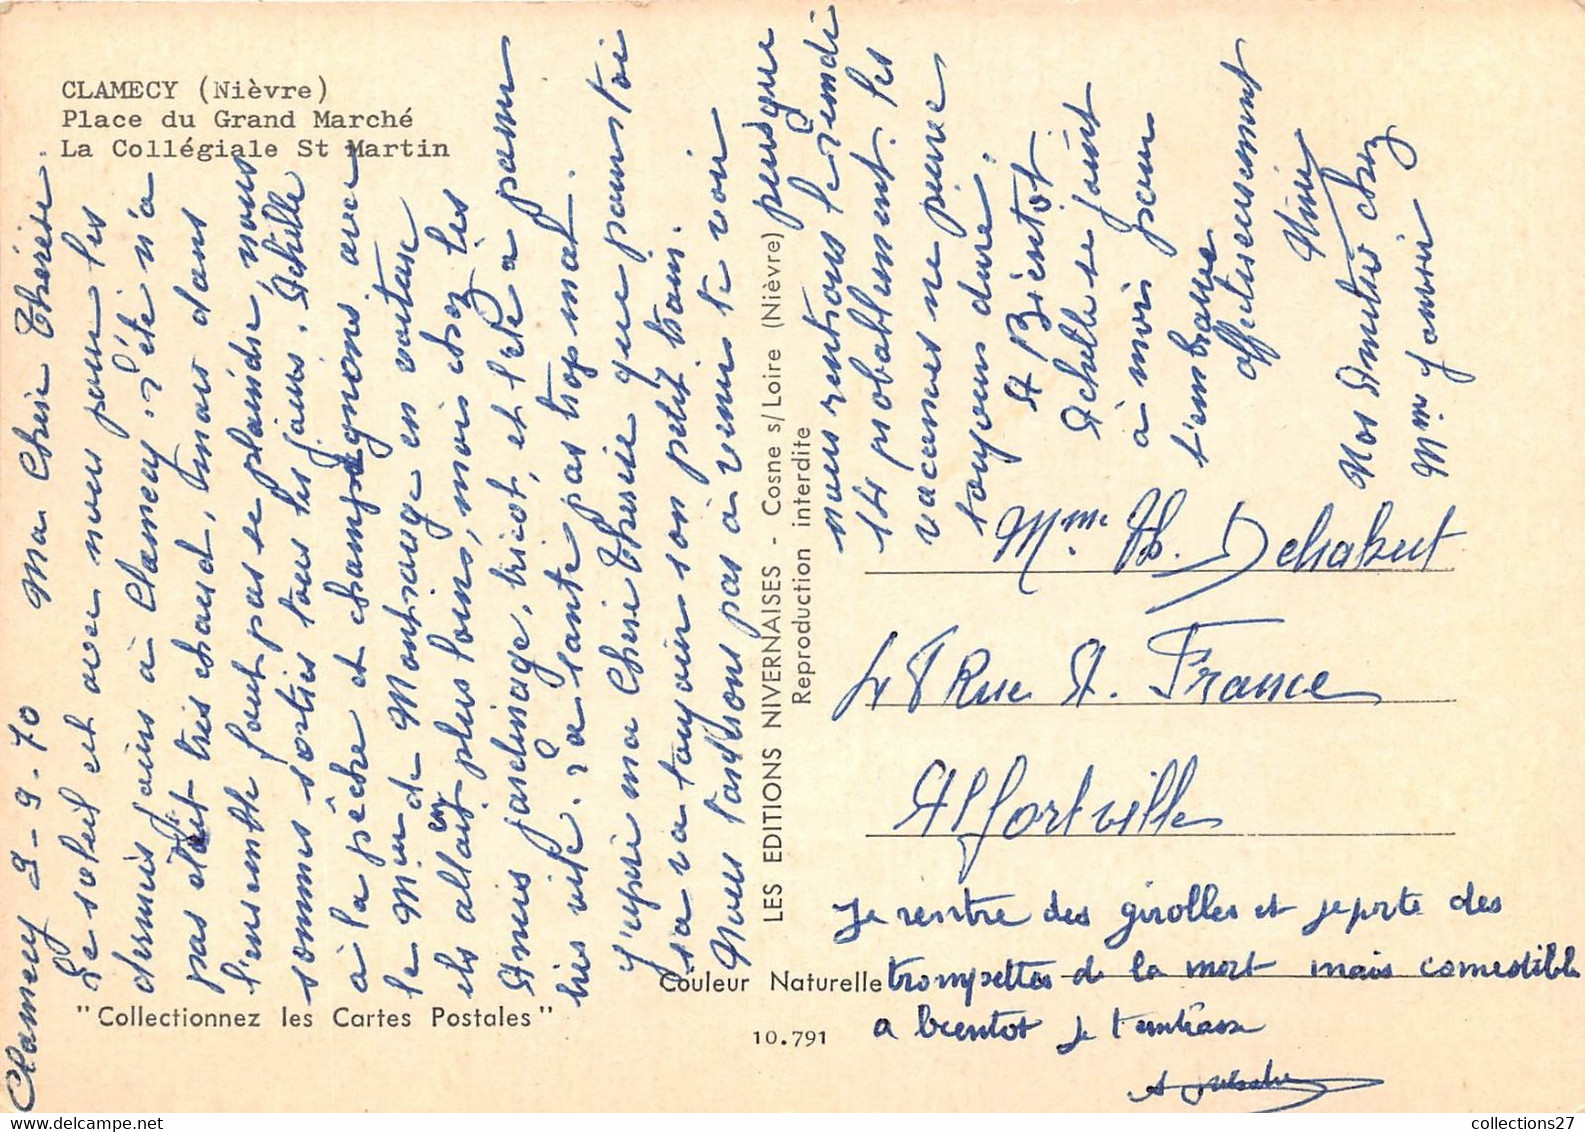 CLAMECY (Nièvre)
Place du Grand Marché
La Collégiale St Martin
Clamecy 9-9-70 Ma Chère Thérèse.
Le soleil est avec nous pour les
derniers jours à Clamecy. L'été n'a
pas était très chaud, mais dans
l'ensemble faut pas se plaindre, nous
sommes sorties tous les jours. Achille
à la pêche et champignons avec
le Mr de Montrouge en voiture
ils allait plus loin, moi chez les
Amis jardinage, tricot, et l'été à passer
très vite. La santé pas trop mal.
J'espère ma Chère Thérèse que pour toi
sa va toujour son petit train.
Nous tarderons pas à venir te voir puisque
nous rentrons le Lundi
14 probablement. les
vacances ne peuve
toujours duré.
A Bientot
Achille se joint
à moi pour
t'embrasser
affectueusement
Mimi
Nos Amitié chez
Mme
Mme Th. Dechabert
48 Rue A. France
Alfortville
Je rentre des girolles et je porte des
trompettes de la mort mais comestible
a bientot je t'embrasse
LES EDITIONS NIVERNAISES - Cosne s/Loire (Nièvre)
Reproduction interdite
Couleur Naturelle
"Collectionnez les Cartes Postales"
10.791
collections27